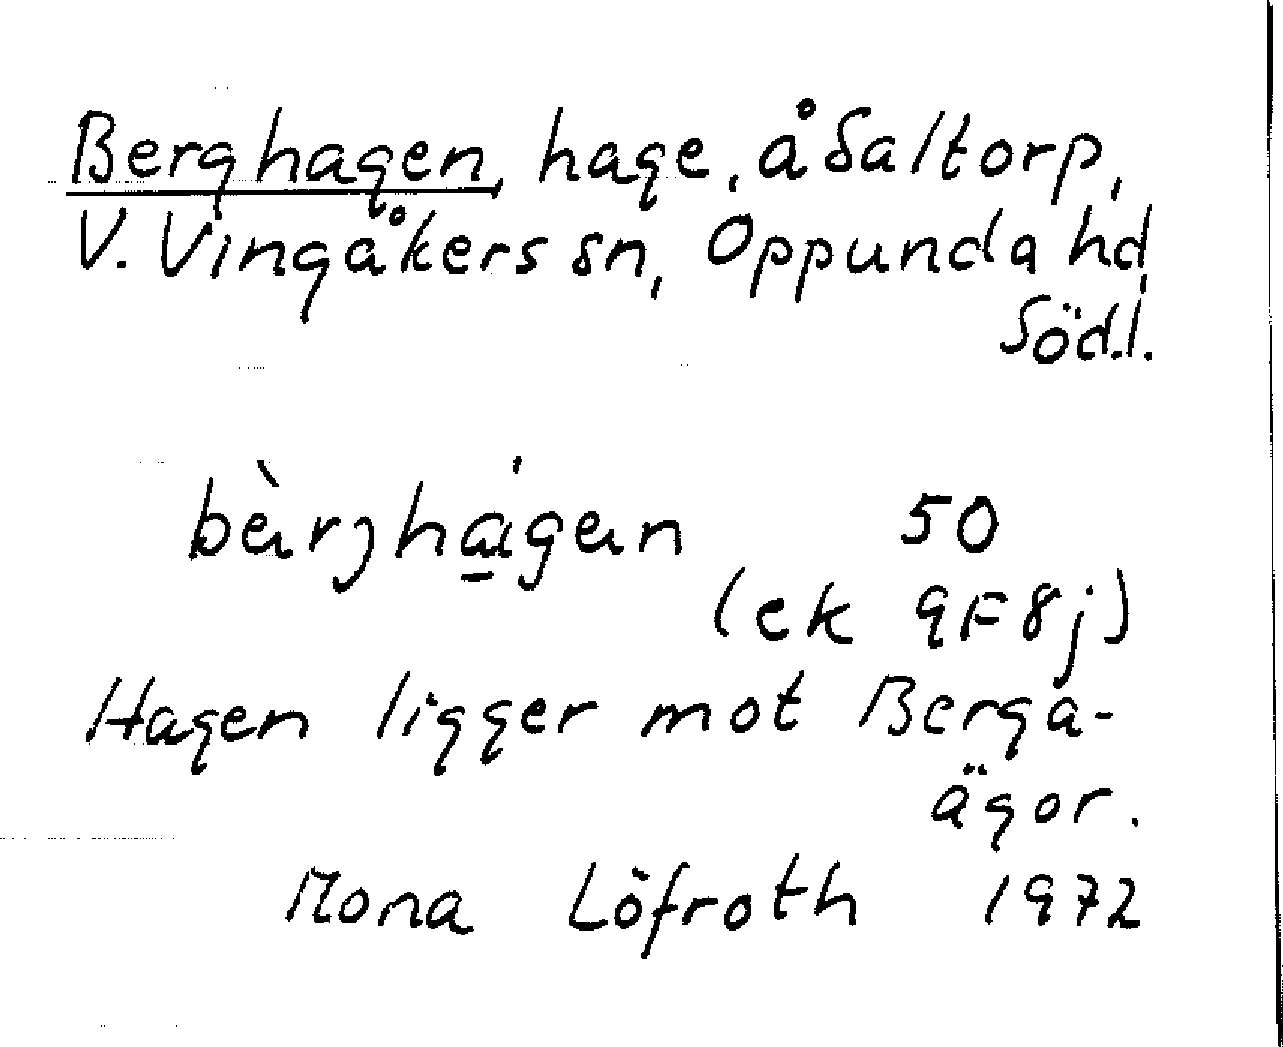 Berghagen, hage, å Saltorp,
V. Vingåkers sn, Oppunda hd,
Söd.l.
bæ̀rjhá̱gæn 50
(ek 9F8j)
Hagen ligger mot Berga-
ägor.
Mona Löfroth 1972